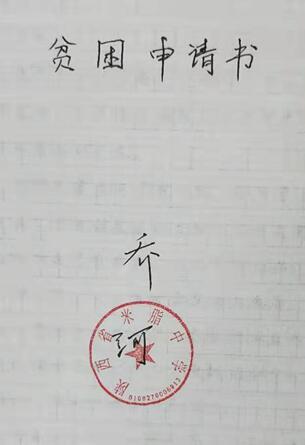 贫困申请书
乔
河
陕西省米脂中学